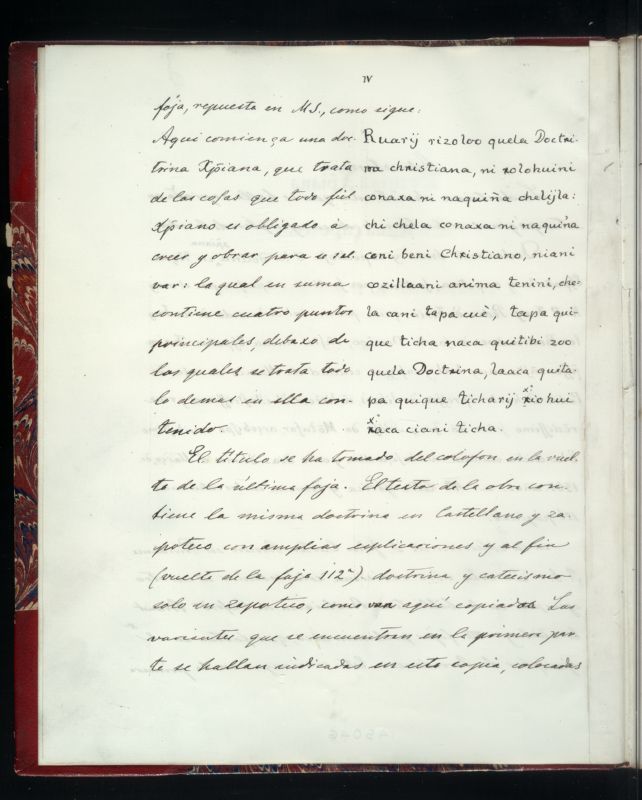 IV
foja, repuesta en MS., como sigue:
Aqui comiença una doc-
trina Xp̃iana, que trata
de las cosas que todo fiel
Xp̃iano es obligado á
creer y obrar para se sal-
var: la qual en suma
contiene cuatro puntos
principales, debaxo de
los quales se trata todo
lo demas en ella con-
tenido.
Ruarij rizoloo quela Doctri-
na christiana, ni rolohuini
conaxa ni naquiña chelijla:
chi chela conaxa ni naquiña
coni beni Christiano, niani
cozillaani anima tenini, che-
la cani tapa cuè, tapa qui-
que ticha naca quitibi zoo
quela Doctrina, laaca quita-
pa quique ticharij xiohui
xaca ciani ticha.
El título se ha tomado del colofon en la vuel-
ta de la última foja. El texto de la obra con-
tiene la misma doctrina en Castellano y za-
poteco con amplias esplicaciones y al fin
(vuelta de la foja 112ª) doctrina y catecismo
solo en zapoteco, como van aquí copiados Las
variantes que se encuentran en la primera par-
te se hallan indicadas en esta copia, colocadas